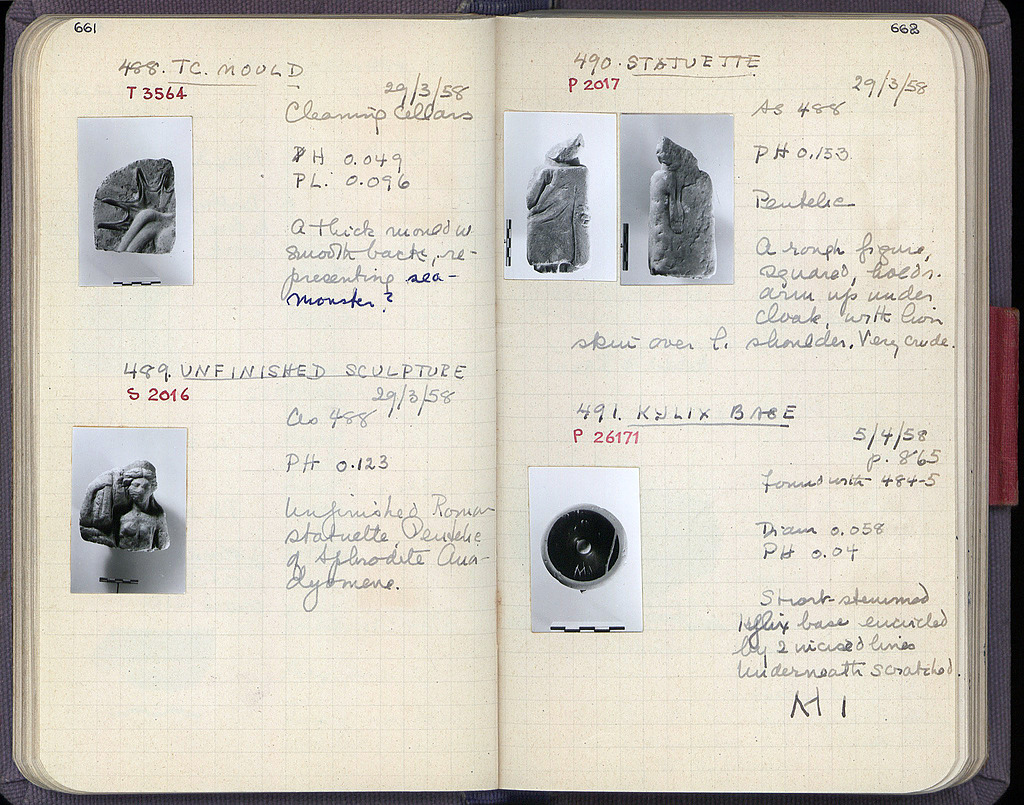 661
488. TC. MOULD
T 3564
29/3/58
Cleaning Cellars
PH 0.049
PL. 0.096
A thick mould w
smooth back, re-
presenting sea-
monster?
489. UNFINISHED SCULPTURE
S 2016
29/3/58
As 488
PH 0.123
Unfinished Roman
statuette, Pentelic
of Aphrodite Ana-
dyomene.
662
490. STATUETTE
P 2017
29/3/58
As 488
PH 0.153
Pentelic
A rough figure,
squared, holds r.
arm up under
cloak, with lion
skin over l. shoulder. Very crude.
491. KYLIX BASE
P 26171
5/4/58
p. 865
Found with 484-5
Diam 0.058
PH 0.04
Short-stemmed
kylix base encircled
by 2 incised lines
Underneath scratched